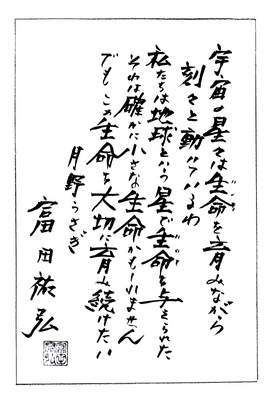 宇宙の星々は生命を育みながら
刻々と動いているわ
私たちは地球という星で生命を与えられた
それは確かに小さな生命かもしれません
でもこの生命を大切に育み続けたい
月野うさぎ
富田祐弘